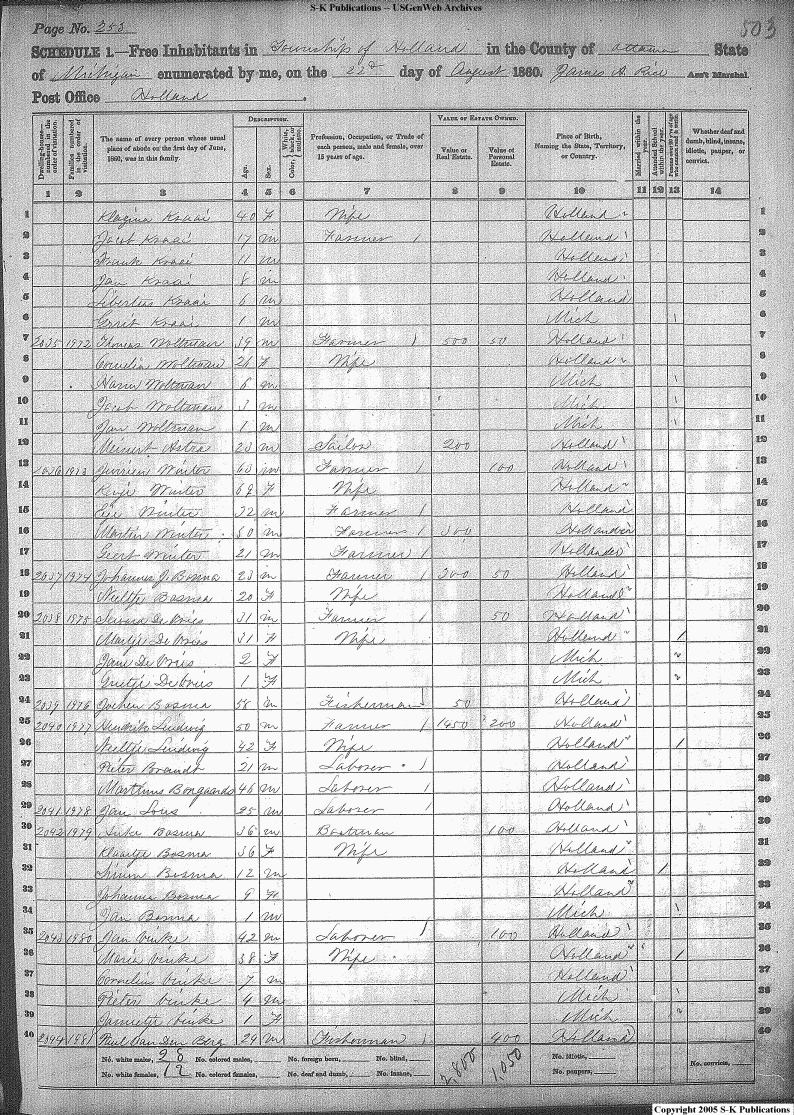 S-K Publications -- USGenWeb Archives
Page No. 253
503
SCHEDULE 1.—Free Inhabitants in Township of Holland in the County of Ottawa State
of Michigan enumerated by me, on the 22d day of August 1860. James A. Rice Ass't Marshal.
Post Office Holland.
Dwelling-houses—numbered in the order of visitation.
Families numbered in the order of visitation.
The name of every person whose usual place of abode on the first day of June, 1860, was in this family.
DESCRIPTION.
Age.
Sex.
Color, White, black, or mulatto.
Profession, Occupation, or Trade of each person, male and female, over 15 years of age.
VALUE OF ESTATE OWNED.
Value of Real Estate.
Value of Personal Estate.
Place of Birth, Naming the State, Territory, or Country.
Married within the year.
Attended School within the year.
Whether deaf and dumb, blind, insane, idiotic, pauper, or convict.
1 2 3 4 5 6 7 8 9 10 11 12 13 14
1 Kraai 40 F Wife Holland 1
2 Jacob Kraai 17 m Farmer Holland 2
3 Frank Kraai 11 m Holland 3
4 Jan Kraai 8 m Holland 4
5 Kraai 6 m Holland 5
6 Gerrit Kraai 1 m Mich 6
7 2035 1972 Thomas Woltman 39 m Farmer 500 50 Holland 7
8 Cornelia Woltman F Wife Holland 8
9 Harm Woltman 6 m Mich 9
10 Jacob Woltman 3 m Mich 10
11 Jan Woltman 1 m Mich 11
12 Meinert Astra 23 m Sailor 200 Holland 12
13 2036 1973 Winter 63 m Farmer 100 Holland 13
14 Winter F Wife Holland 14
15 Winter 32 m Farmer Holland 15
16 Martin Winter 30 m Farmer 300 Holland 16
17 Geert Winter 21 m Farmer Holland 17
18 2037 1974 Johannes J. Bosma 23 m Farmer 300 50 Holland 18
19 Neeltje Bosma 20 F Wife Holland 19
20 2038 1975 De Vries 31 m Farmer 50 Holland 20
21 Martje De Vries 31 F Wife Holland 21
22 Jane De Vries 2 F Mich 22
23 Grietje De Vries 1 F Mich 23
24 2039 1976 Jochem Bosma 58 m Fisherman 50 Holland 24
25 2040 1977 Hendrik Ludwig 50 m Farmer 1450 200 Holland 25
26 Neeltje Ludwig 42 F Wife Holland 26
27 Pieter Brandt 21 m Laborer Holland 27
28 Marthinus Bongaards 46 m Laborer Holland 28
29 2041 1978 Jan Sous 25 m Laborer Holland 29
30 2042 1979 Bosma 36 m Boatman 100 Holland 30
31 Klaartje Bosma 36 F Wife Holland 31
32 Bosma 12 m Holland 32
33 Johanna Bosma 9 F Holland 33
34 Jan Bosma 1 m Mich 34
35 2043 1980 Jan Vinke 42 m Laborer 100 Holland 35
36 Maria Vinke 38 F Wife Holland 36
37 Cornelius Vinke 7 m Holland 37
38 Pieter Vinke 4 m Mich 38
39 Jannetje Vinke 1 F Mich 39
40 2044 1981 Paul Van Den Berg 29 m Fisherman 400 Holland 40
No. white males, 28 No. colored males, No. foreign born, No. blind, 2,800 1,050 No. idiotic,
No. white females, 12 No. colored females, No. deaf and dumb, No. insane, No. paupers, No. convicts,
Copyright 2005 S-K Publications